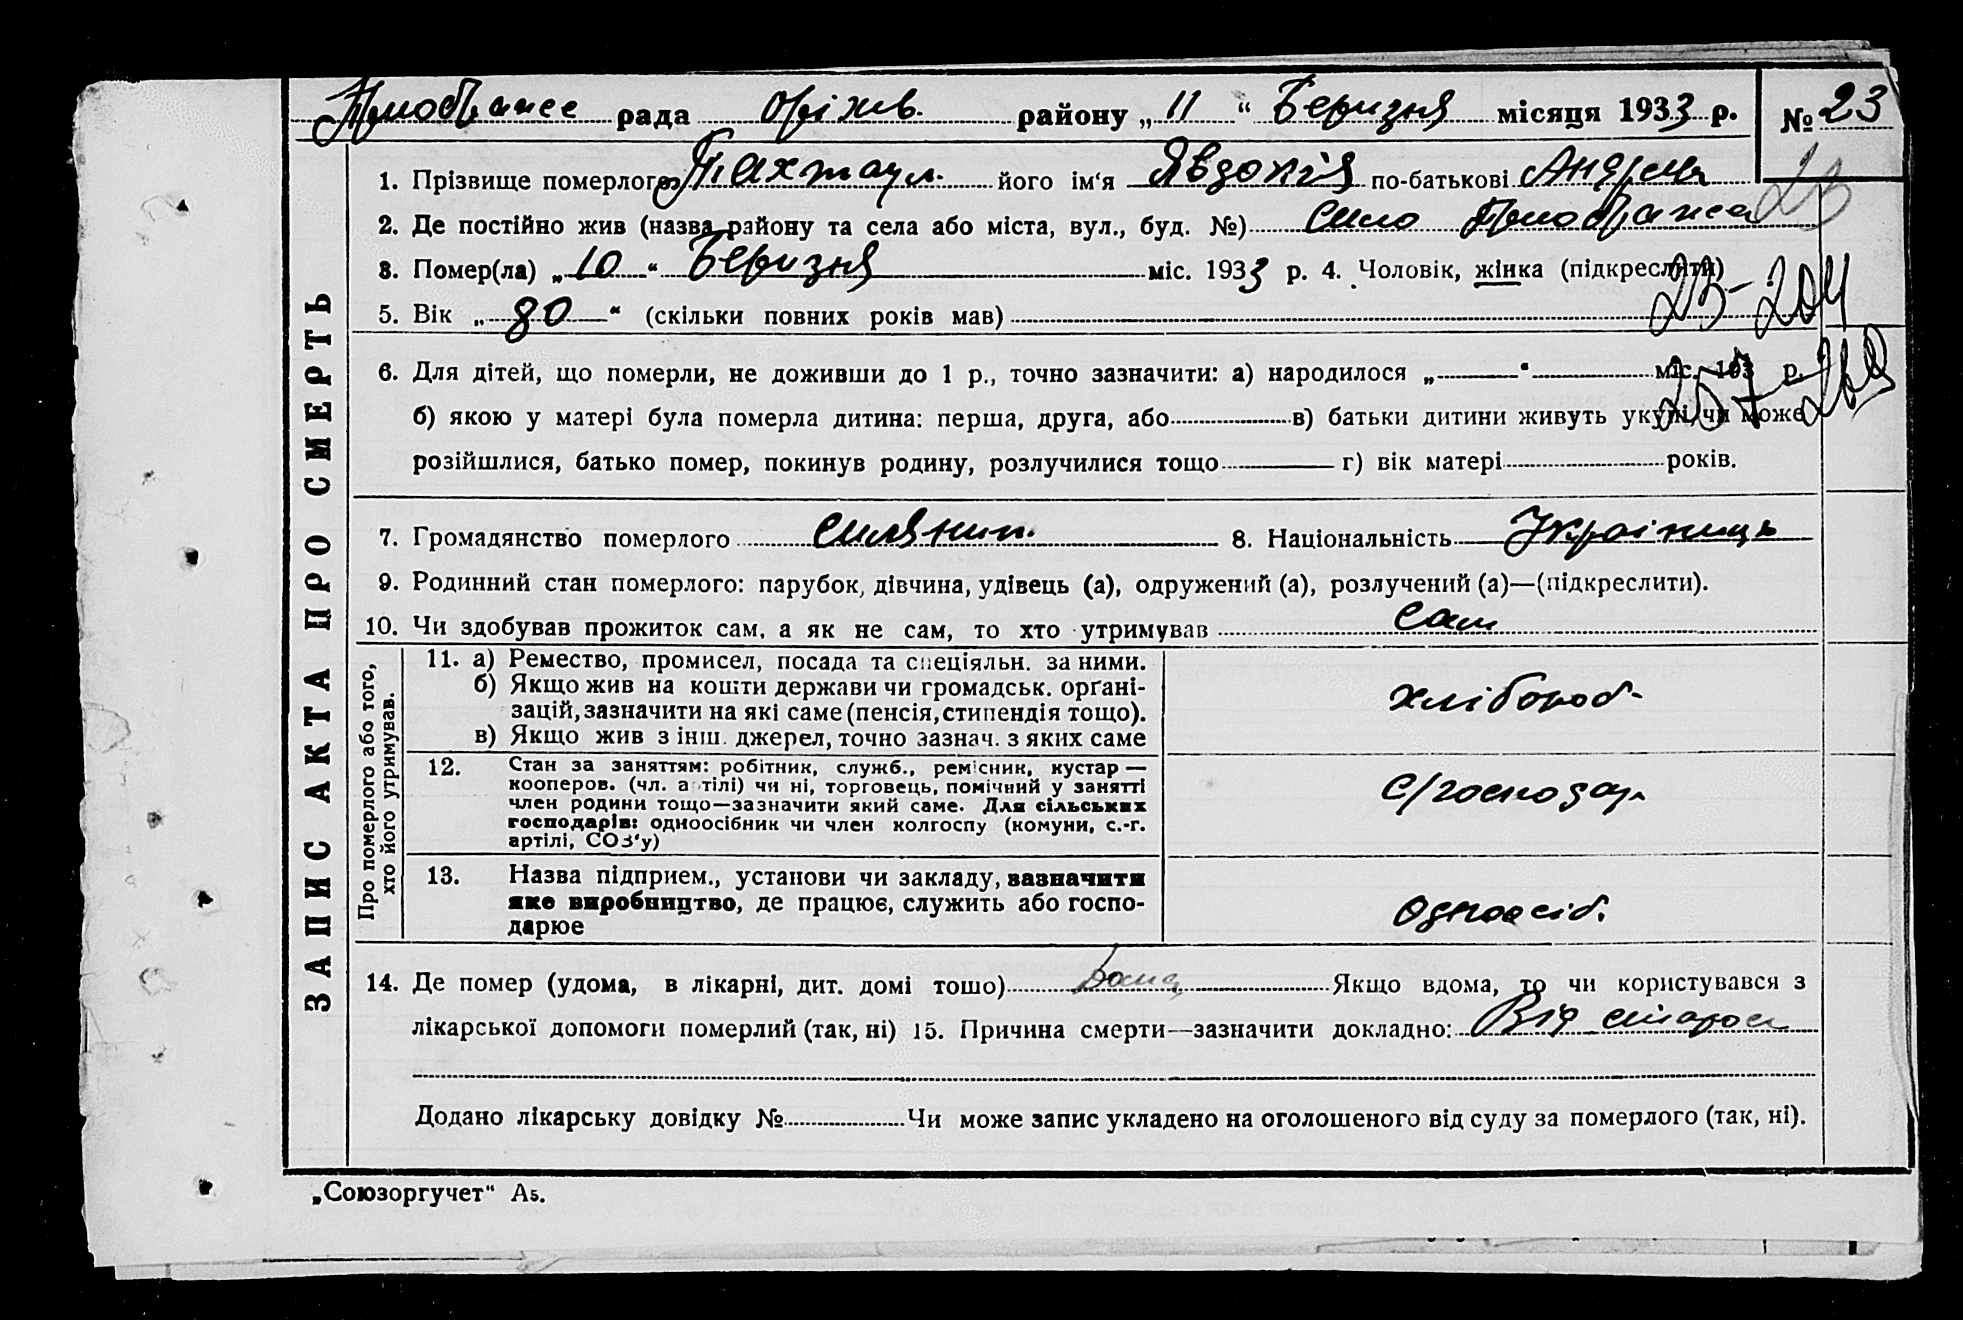 рада Оріхів. району „ 11 “ Беризня місяця 1933 р. № 23
23
1. Прізвище померлого Пахтаул. його ім‘я Явдохія по-батькові Андреев
2. Де постійно жив (назва району та села або міста, вул., буд. №) Село
3. Помер(ла) „ 10 “ Беризня міс. 1933 р. 4. Чоловік, жінка (підкреслити)
23-204
5. Вік „ 80 “ (скільки повних років мав)
6. Для дітей, що померли, не доживши до 1 р., точно зазначити: а) народилося „ “ міс. 193 р.
б) якою у матері була померла дитина: перша, друга, або в) батьки дитини живуть укупі чи може
розійшлися, батько помер, покинув родину, розлучилися тощо г) вік матері років.
7. Громадянство померлого силянин. 8. Національність Украінець
9. Родинний стан померлого: парубок, дівчина, удівець (а), одружений (а), розлучений (а)—(підкреслити).
10. Чи здобував прожиток сам, а як не сам, то хто утримував сам
ЗАПИС АКТА ПРО СМЕРТЬ
Про померлого або того,
хто його утримував.
11. а) Ремество, промисел, посада та спеціяльн. за ними.
б) Якщо жив на кошти держави чи громадськ. орґані-
зацій, зазначити на які саме (пенсія, стипендія тощо).
в) Якщо жив з інш. джерел, точно зазнач. з яких саме
Хлібороб-
12. Стан за заняттям: робітник, служб., ремісник, кустар —
кооперов. (чл. артілі) чи ні, торговець, помічний у занятті
член родини тощо—зазначити який саме. Для сільських
господарів: одноосібник чи член колгоспу (комуни, с.-г.
артілі, СОЗ‘у)
С/господар
13. Назва підприєм., установи чи закладу, зазначити
яке виробництво, де працює, служить або госпо-
дарює
Одноосіб.
14. Де помер (удома, в лікарні, дит. домі тощо) Дома Якщо вдома, то чи користувався з
лікарської допомоги померлий (так, ні) 15. Причина смерти—зазначити докладно: Від старос
Додано лікарську довідку № Чи може запис укладено на оголошеного від суду за померлого (так, ні).
„Союзоргучет“ А5.